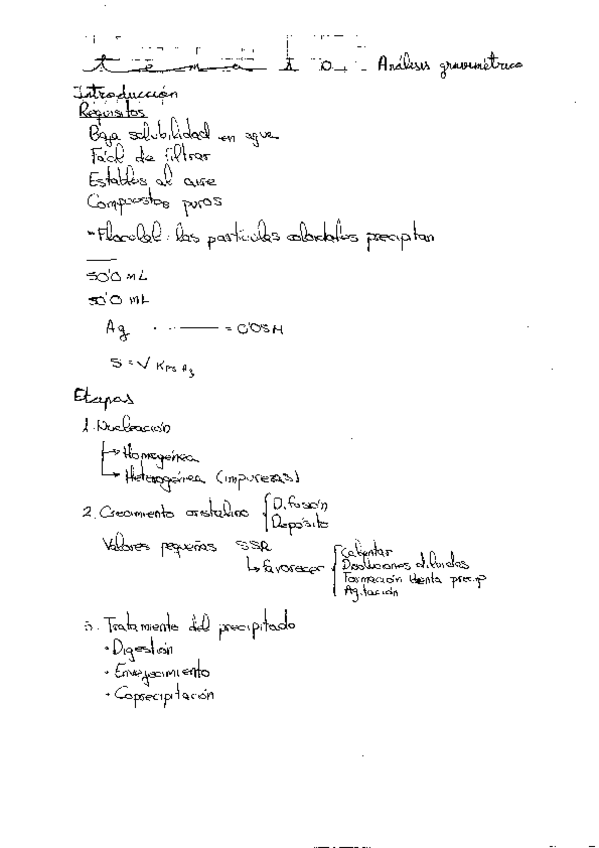 tema 10. Análisis gravimétrico
Introducción
Requisitos
Baja solubilidad en agua
Fácil de filtrar
Estables al aire
Compuestos puros
las partículas coloidales precipitan
50'0 mL
50'0 mL
Ag = 0'05M
S = √ Kps Ag
Etapas
1. Nucleación
→ Homogénea
→ Heterogénea (impurezas)
2. Crecimiento cristalino { Difusión
Depósito
Valores pequeños SSR
↳ favorecer { Calentar
Disoluciones diluidas
Formación lenta precip
Agitación
3. Tratamiento del precipitado
• Digestión
• Envejecimiento
• Coprecipitación